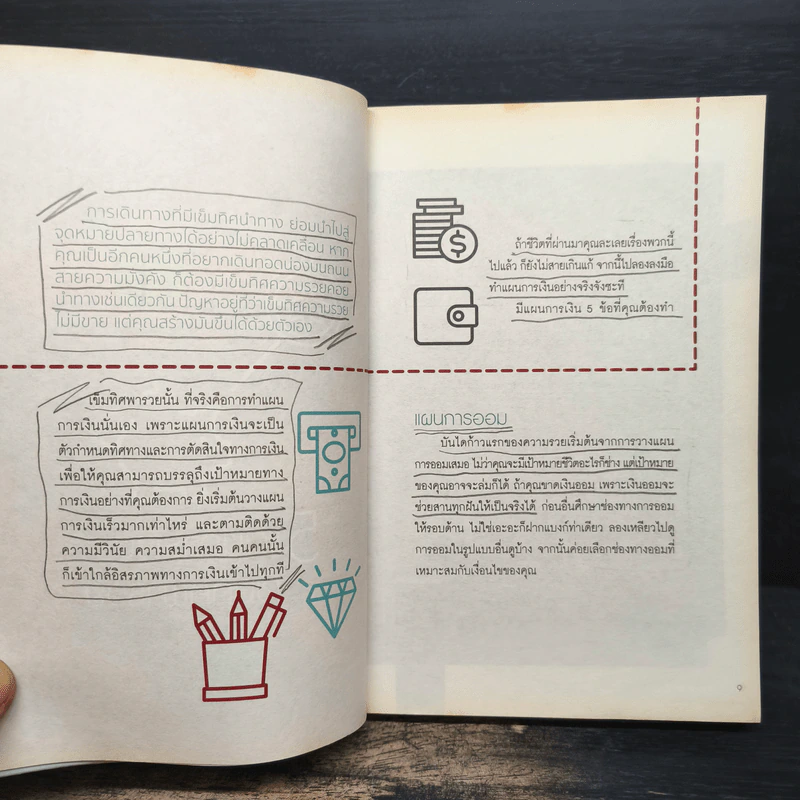 การเดินทางที่มีเข็มทิศนำทาง ย่อมนำไปสู่
จุดหมายปลายทางได้อย่างไม่คลาดเคลื่อน หาก
คุณเป็นอีกคนหนึ่งที่อยากเดินทอดน่องบนถนน
สายความมั่งคั่ง ก็ต้องมีเข็มทิศความรวยคอย
นำทางเช่นเดียวกัน ปัญหาอยู่ที่ว่าเข็มทิศความรวย
ไม่มีขาย แต่คุณสร้างมันขึ้นได้ด้วยตัวเอง
เข็มทิศพารวยนั้น ที่จริงคือการทำแผน
การเงินนั่นเอง เพราะแผนการเงินจะเป็น
ตัวกำหนดทิศทางและการตัดสินใจทางการเงิน
เพื่อให้คุณสามารถบรรลุถึงเป้าหมายทาง
การเงินอย่างที่คุณต้องการ ยิ่งเริ่มต้นวางแผน
การเงินเร็วมากเท่าไหร่ และตามติดด้วย
ความมีวินัย ความสม่ำเสมอ คนคนนั้น
ก็เข้าใกล้อิสรภาพทางการเงินเข้าไปทุกที
ถ้าชีวิตที่ผ่านมาคุณละเลยเรื่องพวกนี้
ไปแล้ว ก็ยังไม่สายเกินแก้ จากนี้ไปลองลงมือ
ทำแผนการเงินอย่างจริงจังซะที
มีแผนการเงิน 5 ข้อที่คุณต้องทำ
แผนการออม
บันไดก้าวแรกของความรวยเริ่มต้นจากการวางแผน
การออมเสมอ ไม่ว่าคุณจะมีเป้าหมายชีวิตอะไรก็ช่าง แต่เป้าหมาย
ของคุณอาจจะล่มก็ได้ ถ้าคุณขาดเงินออม เพราะเงินออมจะ
ช่วยสานทุกฝันให้เป็นจริงได้ ก่อนอื่นศึกษาช่องทางการออม
ให้รอบด้าน ไม่ใช่เอะอะก็ฝากแบงก์ท่าเดียว ลองเหลียวไปดู
การออมในรูปแบบอื่นดูบ้าง จากนั้นค่อยเลือกช่องทางออมที่
เหมาะสมกับเงื่อนไขของคุณ
๑